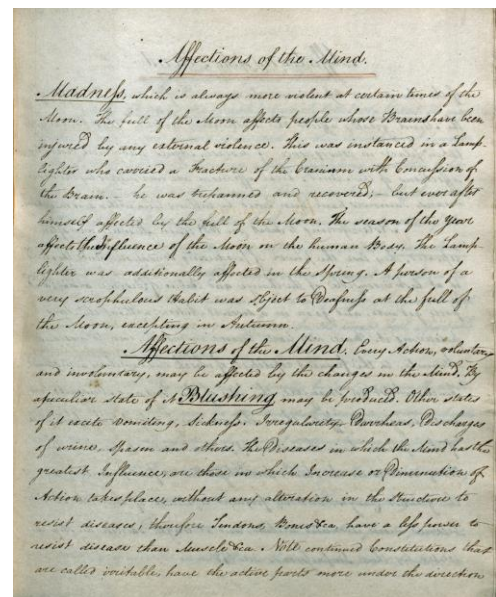 Affections of the Mind.
Madness, which is always more violent at certain times of the
Moon. The full of the Moon affects people whose Brains have been
injured by any external violence. This was instanced in a Lamp-
lighter who          a Fracture of the Cranium with Concussion of
the Brain. he was trepanned and recovered; but ever after
himself affected by the full of the Moon. The season of the Year
affects the Influence of the Moon on the human Body. The Lamp-
lighter was additionally affected in the Spring. A person of a
very scrophulous Habit was subject to Deafness at the full of
the Moon, excepting in Autumn.
Affections of the Mind. Every Action, voluntary
and involuntary, may be affected by the changes in the Mind. By
a peculiar state of it Blushing may be produced. Other states
of it excite vomiting, Sickness. Irregularity, Diarrheas, Discharges
of urine, Spasm and others. The Diseases in which the Mind has the
greatest Influence, are those in which Increase or Diminution of
Action takes place, without any alteration in the Structure to
resist diseases; therefore Tendons, Bones &ca. have a less power to
resist disease than Muscle &ca.          Constitutions that
are called irritable, have the active parts more under the direction